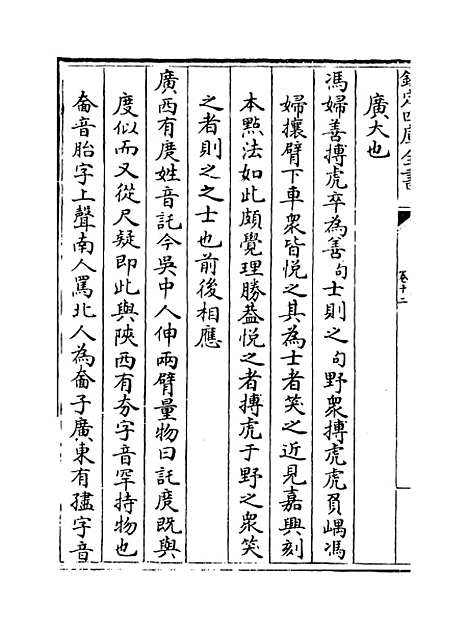 欽定四庫全書
卷十二
廣大也
馮婦善搏虎卒為善句士則之句野衆搏虎虎負嵎馮
婦攘臂下車衆皆悦之其為士者笑之近見嘉興刻
本㸃法如此頗覺理勝葢悦之者搏虎于野之衆笑
之者則之之士也前後相應
廣西有庹姓音託今吳中人伸兩臂量物曰託庹既與
度似而又從尺疑即此與陜西有夯字音罕持物也
奤音胎字上聲南人罵北人為奤子廣東有㜽字音